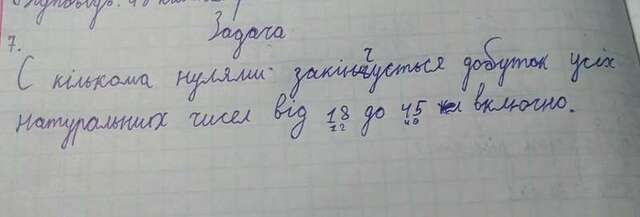 Задача
7.
С кількома нулями закінчується добуток усіх
натуральних чисел від 18 до 45 включно.
12 40